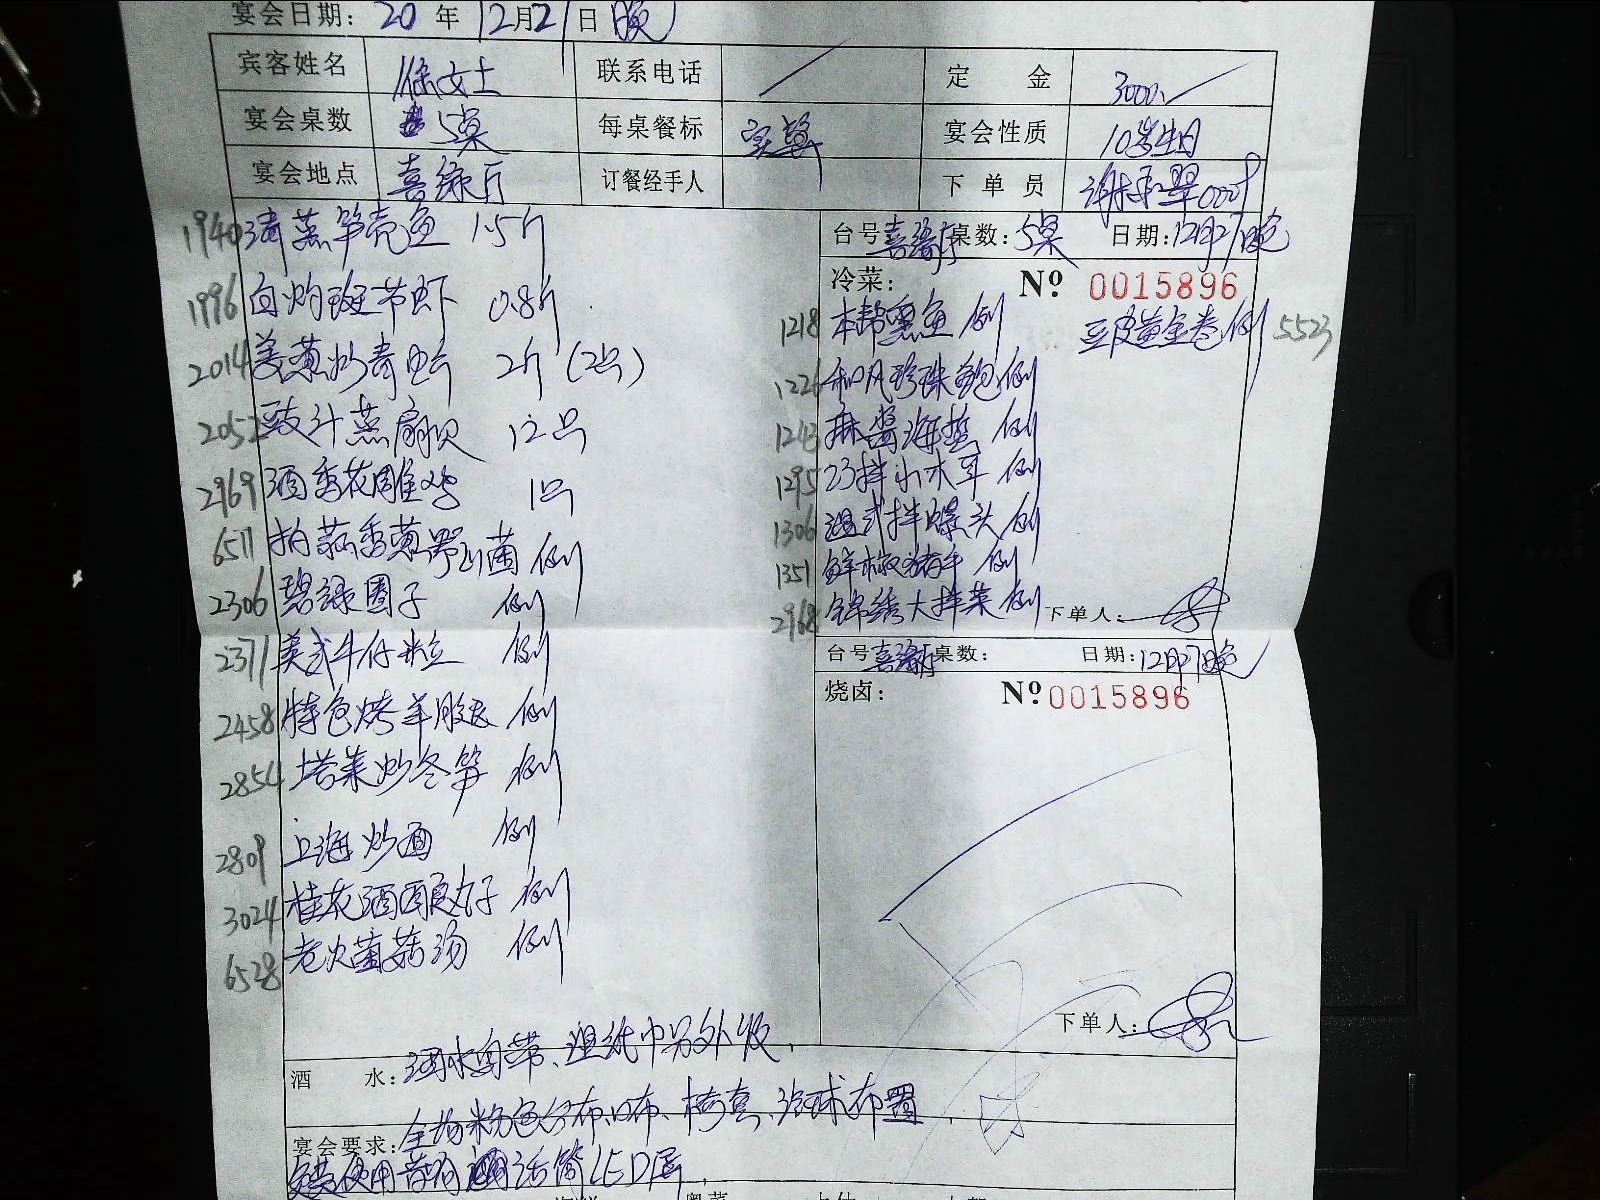 宴会日期: 20 年 12月21日 晚
宾客姓名 徐女士 联系电话 / 定 金 3000.
宴会桌数 5桌 每桌餐标 宴会性质 10岁生日
宴会地点 喜缘厅 订餐经手人 下 单 员 0009
1940 清蒸笋壳鱼 1.5斤
1996 白灼斑节虾 0.8斤
2014 姜葱炒青蟹 2斤 (2只)
2052 豉汁蒸扇贝 12只
2969 酒香花雕鸡 1只
6511 拍蒜香葱野山菌 例
2306 碧绿圈子 例
2371 美式牛仔粒 例
2458 特色烤羊腿 例
2854 塔菜炒冬笋 例
2809 上海炒面 例
3024 桂花酒酿丸子 例
6528 老火菌菇汤 例
台号 喜缘厅 桌数: 5桌 日期: 12月27日晚
冷菜: Nº 0015896
1218 本帮熏鱼 例 豆皮黄金卷 例 5523
1226 和风珍珠鲍 例
1243 麻酱海蜇 例
1295 拌小木耳 例
1306 温式拌螺头 例
1351 鲜椒猪手 例
2968 锦绣大拌菜 例 下单人:
台号 喜缘厅 桌数: 日期: 12月27日晚
烧卤: Nº 0015896
下单人:
酒 水: 酒水自带、湿纸巾另外收.
宴会要求: 全场粉色台布、口布、椅套、汽球布置
使用音响 话筒 LED屏.